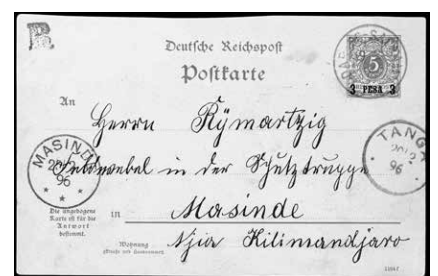 Deutsche Reichspost
Postkarte
DAR-ES-SALAAM
5
3 PESA 3
An
Herrn Rymartzig
Feldwebel in der Schutztruppe
MASINDE
20/12
96
TANGA
96
Die angebogene
Karte ist für die
Antwort
bestimmt.
in Masinde
Wohnung
(Straße und Hausnummer)
Njia Kilimandjaro